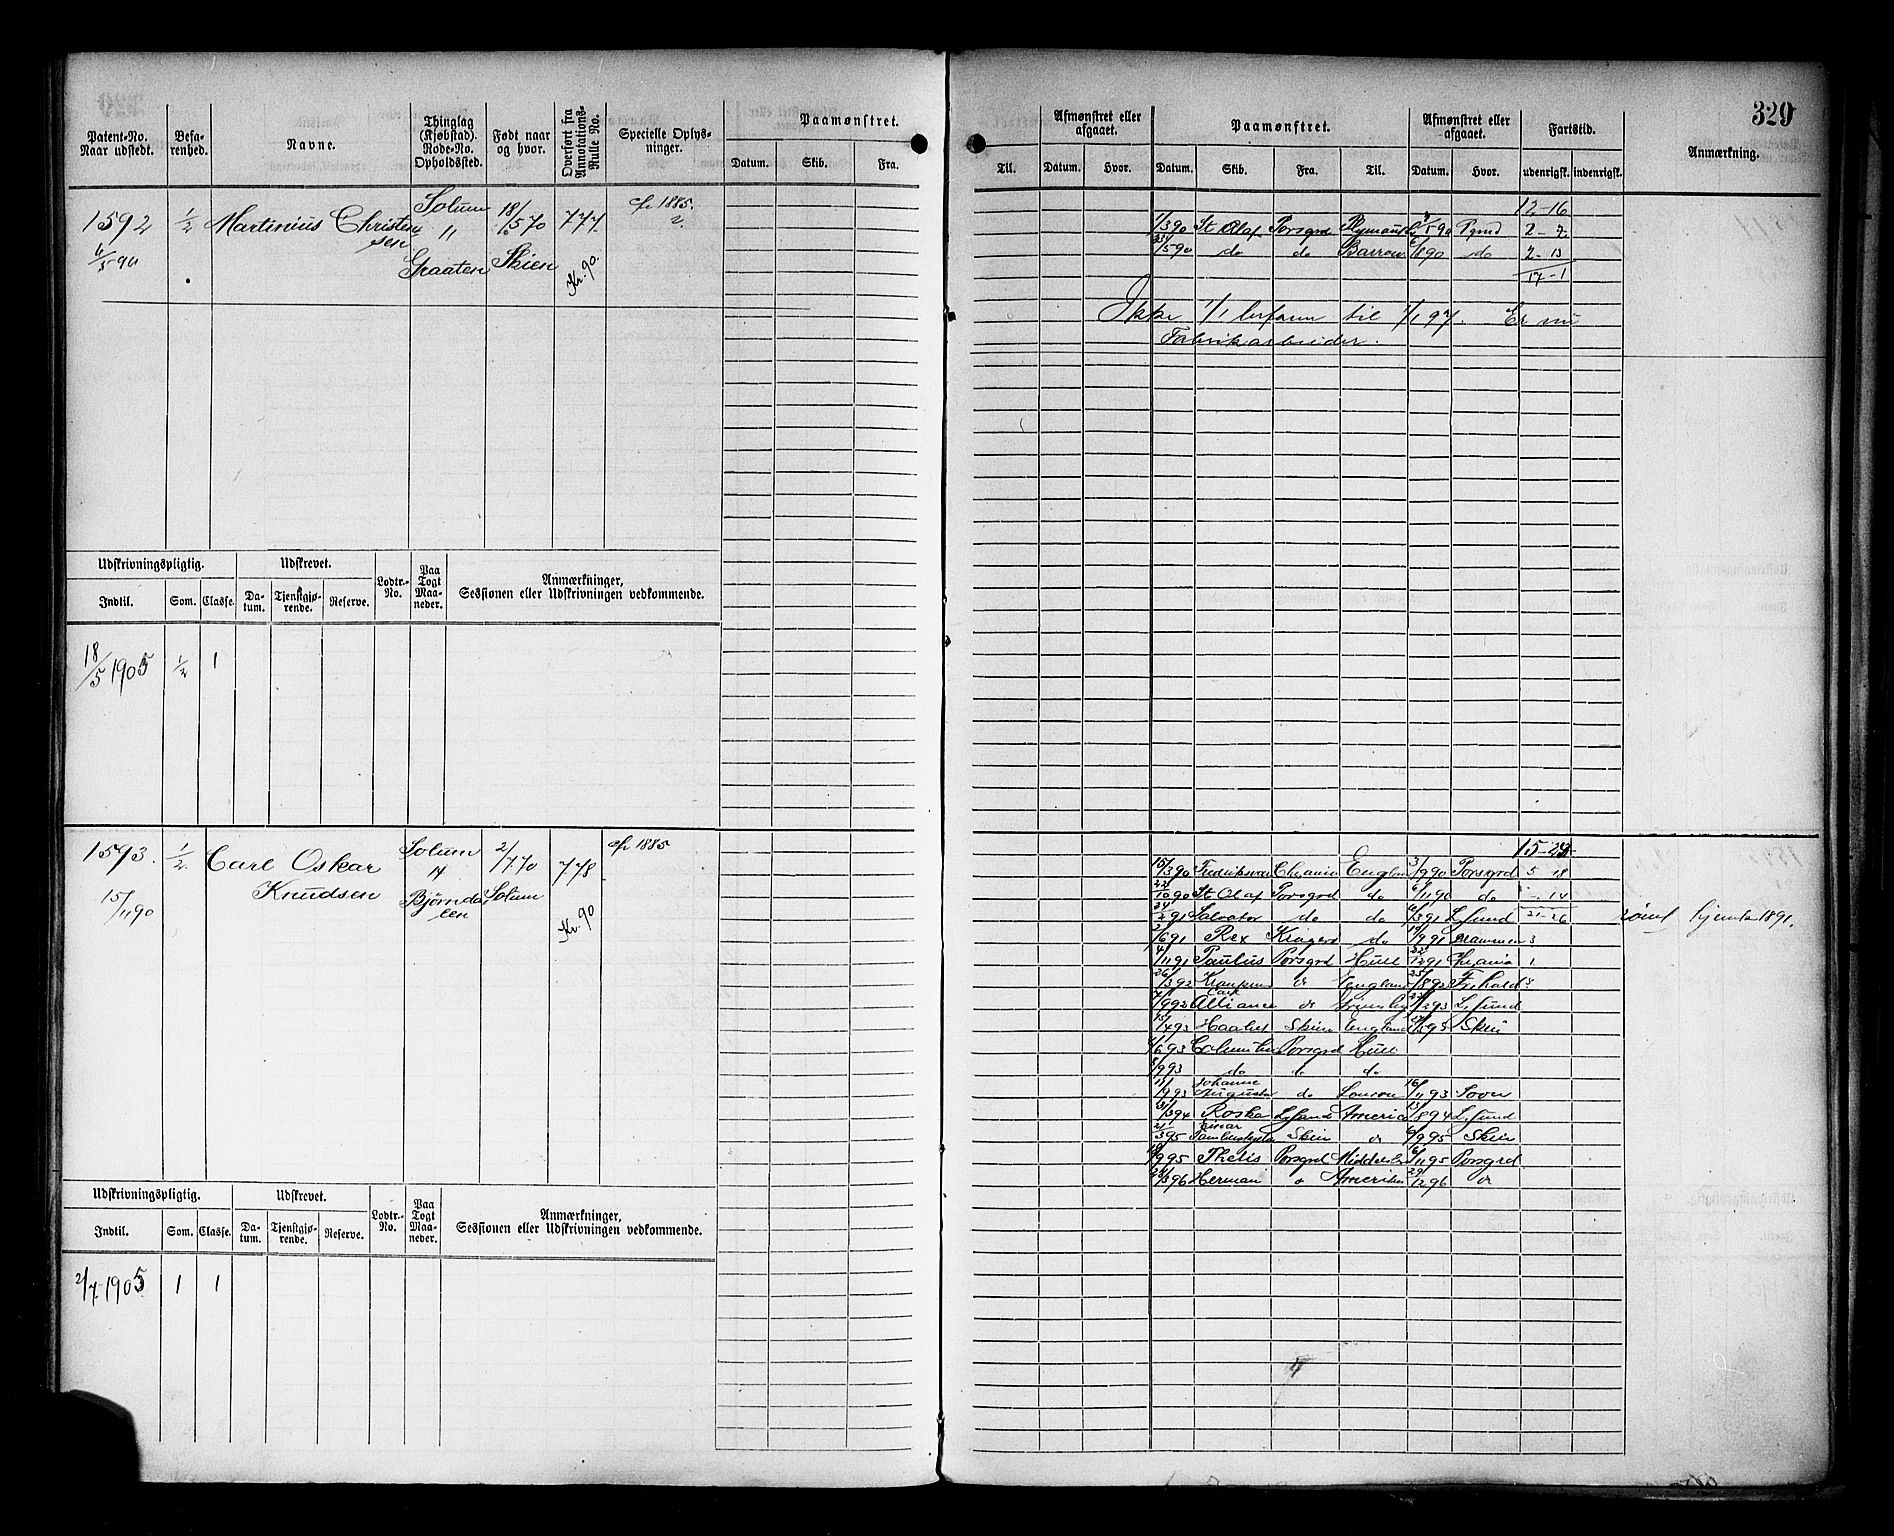 329
Patent-No. Naar udstedt.
Befarenhed.
Navne.
Thinglag (Kjøbstad). Rode-No. Opholdssted.
Født naar og hvor.
Overført fra Annotations-Rulle No.
Specielle Oplysninger.
Paamønstret.
Datum. Skib. Fra.
Afmønstret eller afgaaet.
Paamønstret.
Afmønstret eller afgaaet.
Fartstid.
Anmærkning.
Til. Datum. Hvor. Datum. Skib. Fra. Til. Datum. Hvor. udenrigsk. indenrigsk.
1592 1/2 Martinius Christensen Solum 18/5 70 777 cfr 1885.
6/5 90
" 2
Graaten Skien Kr. 90.
12-16
1/3 90 St Olaf Porsgrd Plymouth 5 90 Pgrnd 2-7
5 90 do do Barrow 8 90 do 2-13
17-1
Ikke 1/1 befaren til 1/1 97. Er nu
Fabrikarbeider.
Udskrivningspligtig.
Udskrevet.
Lodtr.-No.
Paa Togt Maaneder.
Anmærkninger, Sessionen eller Udskrivningen vedkommende.
Indtil. Som. Classe. Datum. Tjenstgjørende. Reserve.
18/5 1905 1/2 1
1593. 1/2 Carl Oskar Knudsen Solum 2/7 70 778 cfr 1885
15/11 90
14
Bjørndalen Solum Kr. 90
15-23
15/3 90 Chrania England 3/9 90 Porsgrd 5 18
22/10 90 St Olaf Porsgrd do 6/11 90 do 14
24/2 91 Salvator do do 6/3 91 Lsund 21-26 hjemta 1891.
2/6 91 Rex Kragerø do 19/9 91 Drammen 3
4/11 91 Paulus Porsgrd Hull 22/12 91 Chrania 1
26/3 92 do England 25/8 92 Frhald
7/9 92 Alliance do Grimsby 2 93 Lsund
15/4 93 Skien England 5 93 Skien
6 93 Porsgrd Hull
9 93 do do do
Johanne
Augusta do London 16/11 93
31/3 94 Roska Lsund America 13/8 94 Lsund
21/3 95 Skien do 6/9 95 Skien
9 95 Thetis Porsgrd 6/11 95 Porsgrd
24/3 96 Herman do Amerika 29/12 96 do
Udskrivningspligtig.
Udskrevet.
Lodtr.-No.
Paa Togt Maaneder.
Anmærkninger, Sessionen eller Udskrivningen vedkommende.
Indtil. Som. Classe. Datum. Tjenstgjørende. Reserve.
2/7 1905 1 1